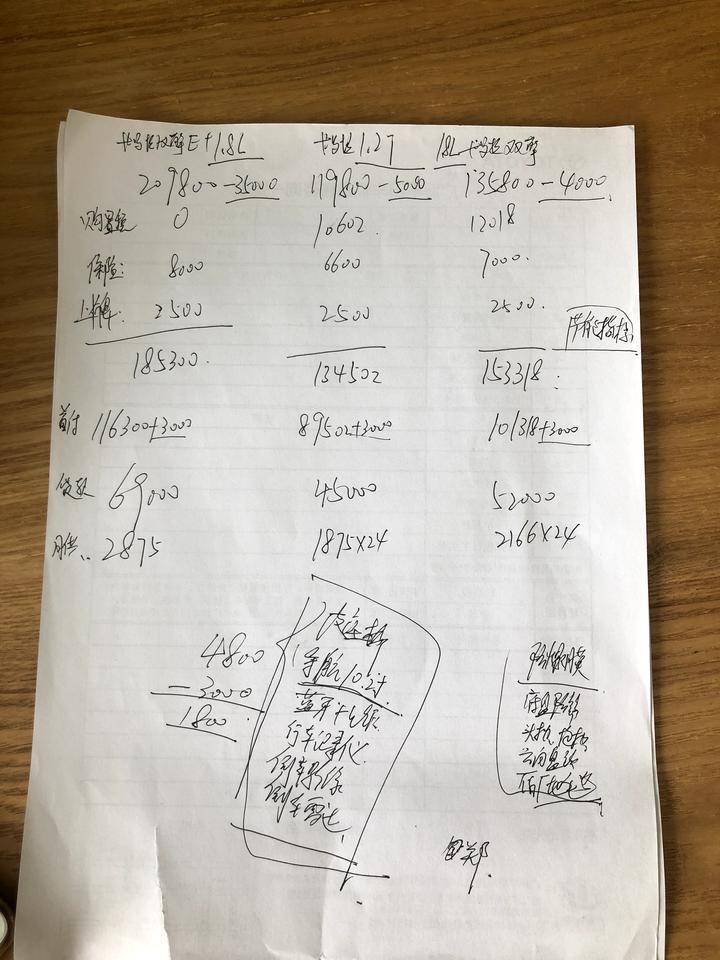 卡罗拉双擎E+1.8L 卡罗拉1.2T 1.8L卡罗拉双擎
209800-35000 119800-5000 135800-4000
购置税 0 10602 12018
保险: 8000 6600 7000
上牌: 2500 2500 2500
节能指标
185300 134502 153318
首付 116300+3000 89502+3000 101318+3000
贷款 69000 45000 52000
月供 2875 1875X24 2166X24
4800
-3000
1800
导航10.2寸
行车记录仪
倒车影像
倒车雷达
防爆膜